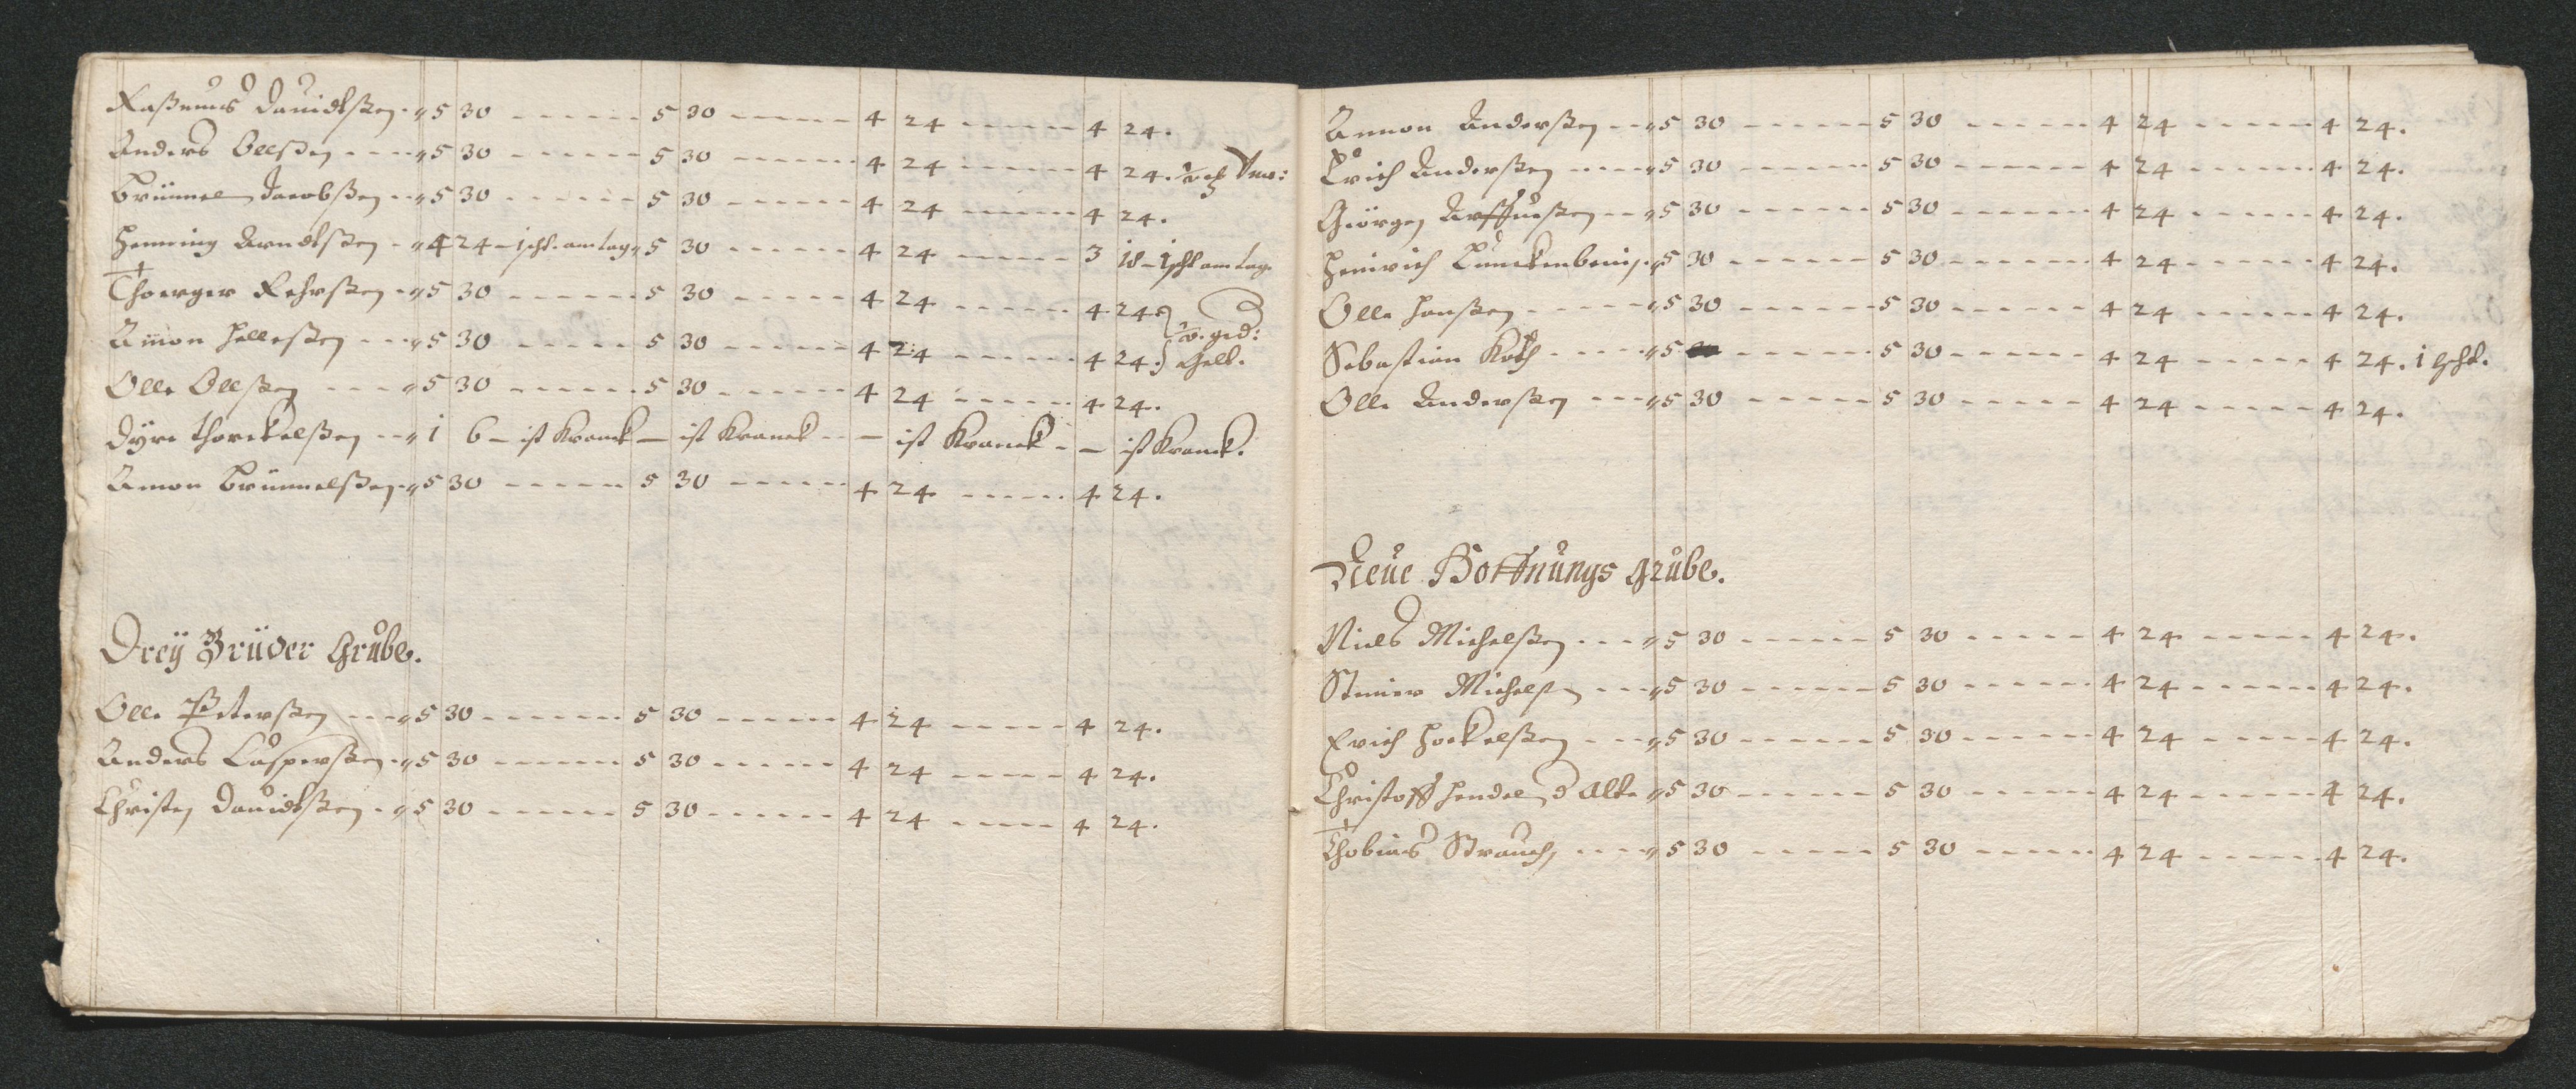 Raßmus Davidtßen - " 5 30 - - - - - - 5 30 - - - - - - 4 24 - - - - - - 4 24.
Anders Ollßen - - - " 5 30 - - - - - - 5 30 - - - - - - 4 24 - - - - - - 4 24.
Brünnel Jacobßen - - " 5 30 - - - - - - 5 30 - - - - - - 4 24 - - - - - - 4 24.
Henning Arndtßen - " 4 24 - 1 schl. am tag " 5 30 - - - - - - 4 24 - - - - - - 3 18 - 1 schl am tag
Thorger Rehrßen - " 5 30 - - - - - - 5 30 - - - - - - 4 24 - - - - - - 4 24.
Amon Helleßen - - - " 5 30 - - - - - - 5 30 - - - - - - 4 24 - - - - - - 4 24.
Olle Ollßen - - - " 5 30 - - - - - - 5 30 - - - - - - 4 24 - - - - - - 4 24.
Dÿre Thorckelßen - - " 1 6 - ist Kranck - ist Kranck - - ist Kranck - - ist Kranck.
Amon Brünnelßen - " 5 30 - - - - - - 5 30 - - - - - - 4 24 - - - - - - 4 24.
Dreÿ Brüder Grube.
Olle Peterßen - - - " 5 30 - - - - - - 5 30 - - - - - - 4 24 - - - - - - 4 24.
Anders Casperßen - " 5 30 - - - - - - 5 30 - - - - - - 4 24 - - - - - - 4 24.
Christen Davidtßen - " 5 30 - - - - - - 5 30 - - - - - - 4 24 - - - - - - 4 24.
Ammon Anderßen - - " 5 30 - - - - - - 5 30 - - - - - - 4 24 - - - - - - 4 24.
Erich Anderßen - - - " 5 30 - - - - - - 5 30 - - - - - - 4 24 - - - - - - 4 24.
Giörgen - - " 5 30 - - - - - - 5 30 - - - - - - 4 24 - - - - - - 4 24.
Heinrich " 5 30 - - - - - - 5 30 - - - - - - 4 24 - - - - - - 4 24.
Olle Hanßen - - - - " 5 30 - - - - - - 5 30 - - - - - - 4 24 - - - - - - 4 24.
Sebastian Koch - - - - " 5 - - - - - - 5 30 - - - - - - 4 24 - - - - - - 4 24. 1 schl.
Olle Anderßen - - - " 5 30 - - - - - - 5 30 - - - - - - 4 24 - - - - - - 4 24.
Neue Hoffnungs grube.
Niels Michelßen - - - " 5 30 - - - - - - 5 30 - - - - - - 4 24 - - - - - - 4 24.
Steiner Michelßen - - - " 5 30 - - - - - - 5 30 - - - - - - 4 24 - - - - - - 4 24.
Erich Hockelßen - - - " 5 30 - - - - - - 5 30 - - - - - - 4 24 - - - - - - 4 24.
Christoff Hendel d Alte " 5 30 - - - - - - 5 30 - - - - - - 4 24 - - - - - - 4 24.
Thobias Strauch, - - - " 5 30 - - - - - - 5 30 - - - - - - 4 24 - - - - - - 4 24.